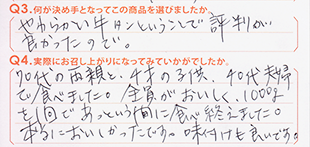 Q3.何が決め手となってこの商品を選びましたか。
やわらかい牛タンということで評判が
良かったので。
Q4.実際にお召し上がりになってみていかがでしたか。
70代の両親と、4才の子供、40代夫婦
で食べました。全員がおいしく、1000g
を1回であっという間に食べ終えました。
本当においしかったです。味付けも良いです。